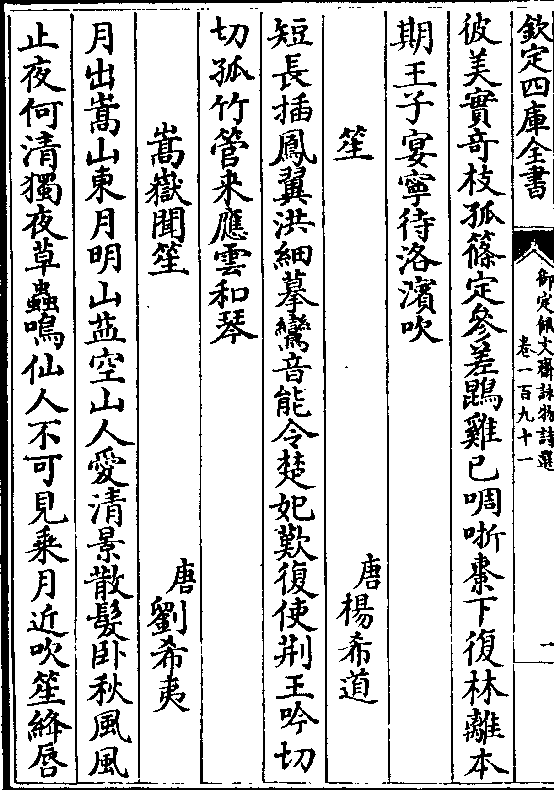 欽定四庫全書
御定佩文齋詠物詩選
卷一百九十一
一
彼美實竒枝孤篠定參差鵾雞已啁哳棗下復林離本
期王子宴寧待洛濱吹
笙
唐楊希道
短長插鳳翼洪細摹鸞音能令楚妃歎復使荆王吟切
切孤竹管來應雲和琴
嵩嶽聞笙
唐劉希夷
月出嵩山東月明山益空山人愛清景散髮卧秋風風
止夜何清獨夜草蟲鳴仙人不可見乘月近吹笙絳唇